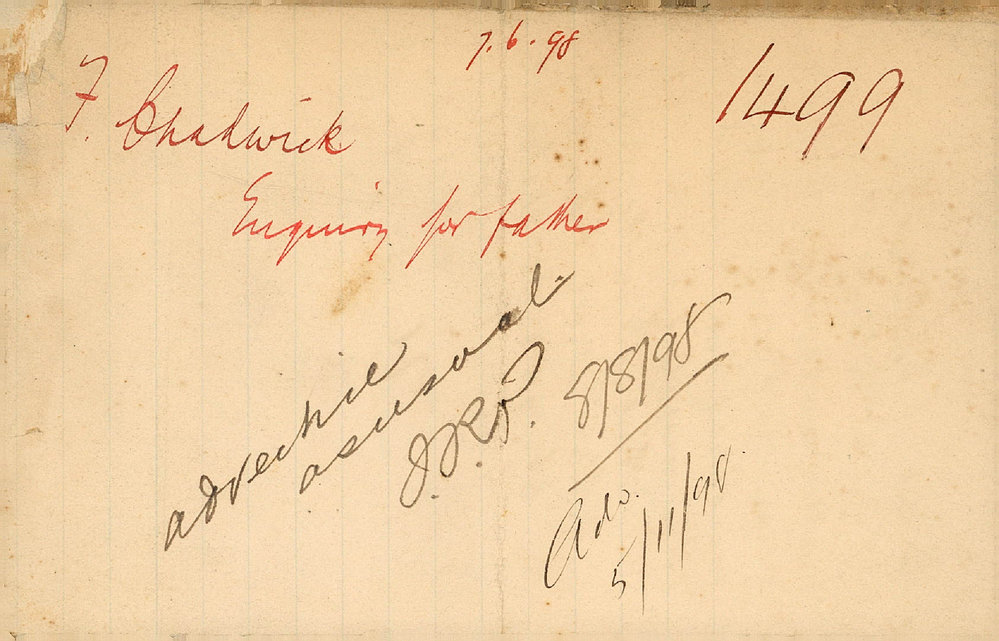 7.6.98
1499
F. Chadwick
Enquiry for father
advertise
as usual.
J.R.P. 8/8/98
Adv.
5/11/98.